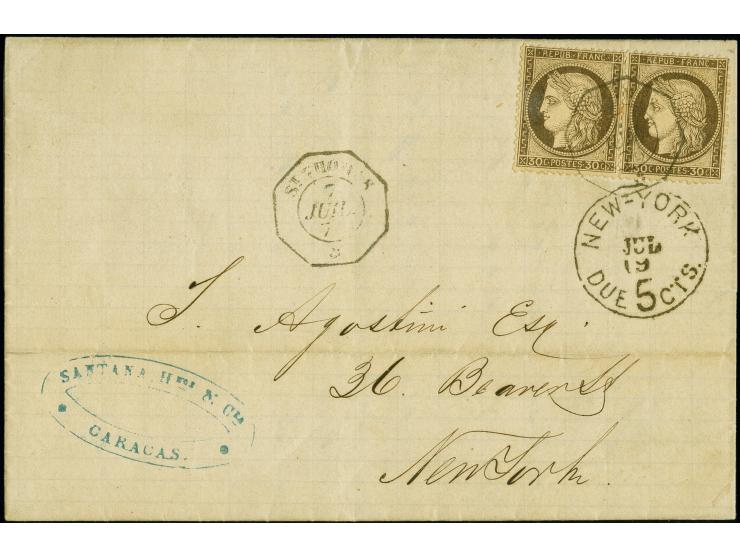 REPUB. FRANC. REPUB. FRANC.
30C·POSTES·30C 30C·POSTES·30C
ST THOMAS
7
JUIL.
7
NEW-YORK
JUL
19
DUE 5 CTS.
J. Agostini Esq.
36. Beaver St
New York.
SANTANA HNOS & CIA
CARACAS.